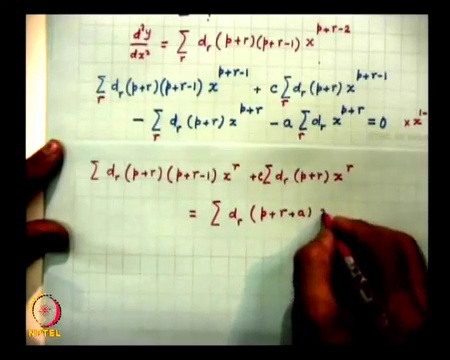 d²y/dx² = Σ_r d_r (p+r)(p+r-1) x^{p+r-2}
Σ_r d_r (p+r)(p+r-1) x^{p+r-1} + c Σ_r d_r (p+r) x^{p+r-1}
- Σ_r d_r (p+r) x^{p+r} - a Σ_r d_r x^{p+r} = 0 × x^{1-
Σ d_r (p+r)(p+r-1) x^r + c Σ d_r (p+r) x^r
= Σ d_r (p+r+a)
NPTEL